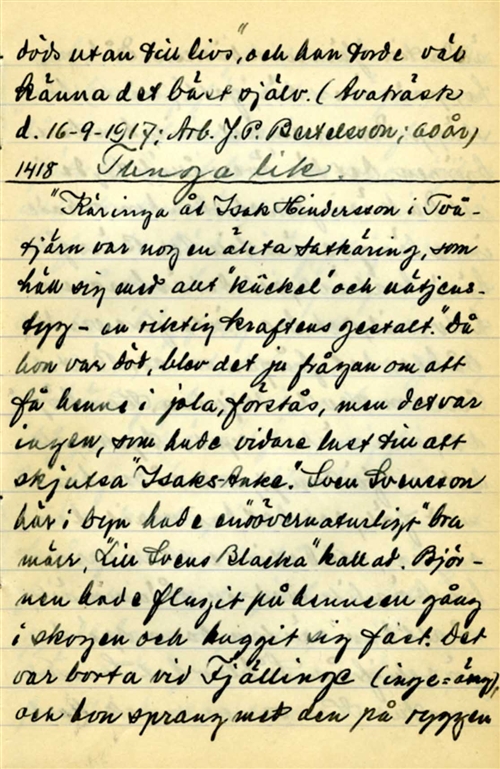 döds utan till livs", och han torde väl
känna det bäst själv. (Avaträsk
d. 16-9-1917; Arb. J. P. Bertelsson; 60 år)
1418 Tunga lik.
"Käringa åt Isak Hindersson i Två-
tjärn var nog en äkta satkäring, som
höll sig med allt "kückel" och otäcjens-
tyg - en riktig kraftens gestalt." Då
hon var död, blev det ju frågan om att
få henne i jola, förstås, men det var
ingen, som hade vidare lust till att
skjutsa "Isaks-Anke." Sven Svensson
här i byn hade en "öövernaturligt" bra
märr, "Lill Svens Blacka" kallad. Björ-
nen hade flugit på henne en gång
i skogen och huggit sig fast. Det
var borta vid Fjällinge (inge = äng),
och hon sprang med den på ryggen